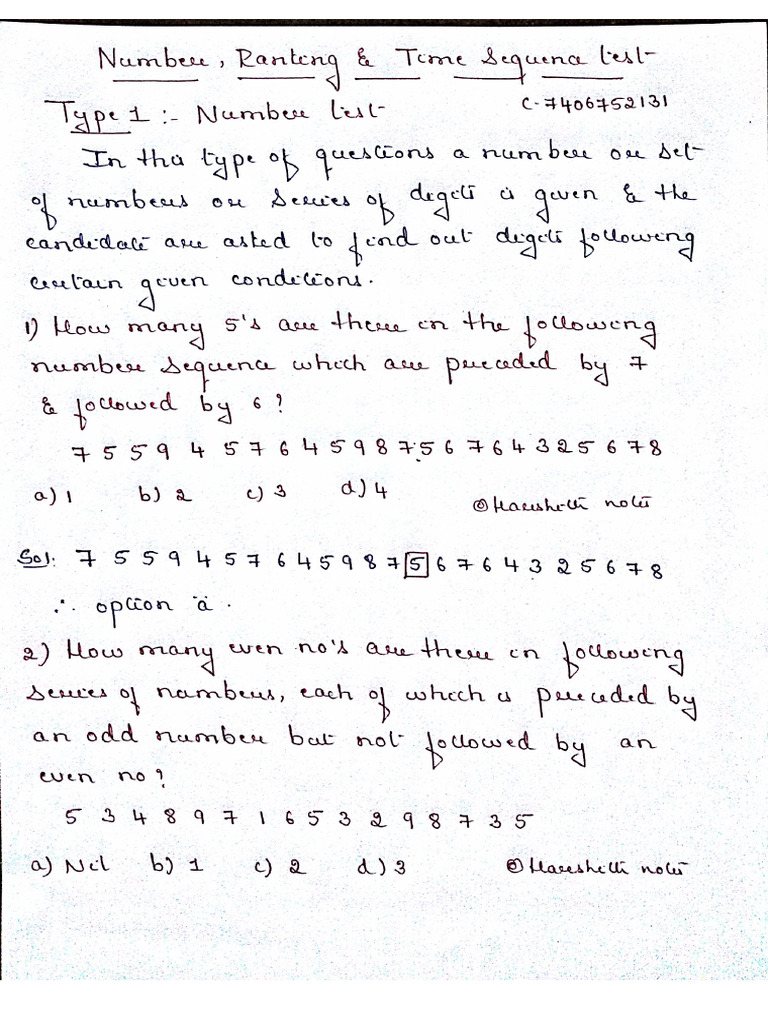 Number, Ranking & Time Sequence test
Type 1 :- Number test
C-7406752131
In tha type of questions a number or set
of numbers or series of digits is given & the
candidate are asked to find out digits following
certain given conditions.
1) How many 5's are there in the following
number sequence which are preceded by 7
& followed by 6 ?
7 5 5 9 4 5 7 6 4 5 9 8 7 5 6 7 6 4 3 2 5 6 7 8
a) 1 b) 2 c) 3 d) 4
© Harshith notes
Sol: 7 5 5 9 4 5 7 6 4 5 9 8 7 5 6 7 6 4 3 2 5 6 7 8
∴ option 'a' .
2) How many even no's are there in following
series of numbers, each of which is preceded by
an odd number but not followed by an
even no ?
5 3 4 8 9 7 1 6 5 3 2 9 8 7 3 5
a) Nil b) 1 c) 2 d) 3 © Harshith notes